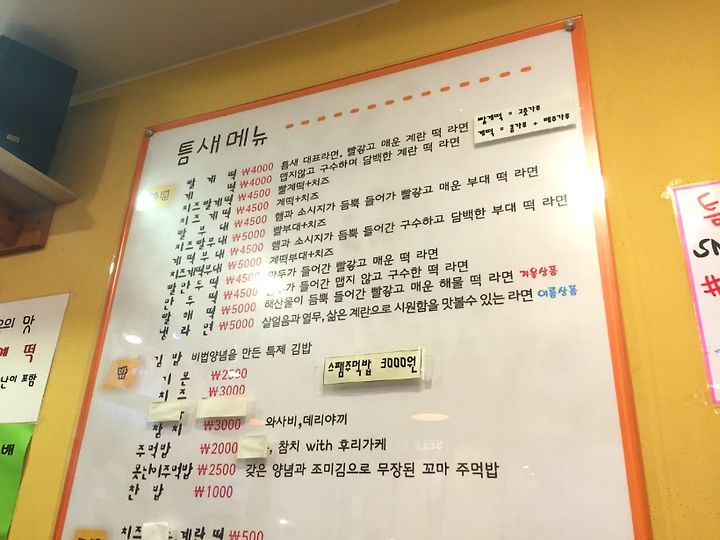 틈새메뉴
빨계떡 = 고춧가루
계떡 = 콩가루 + 메주가루
빨 계 떡 ₩4000 틈새 대표라면, 빨갛고 매운 계란 떡 라면
계 떡 ₩4000 맵지않고 구수하며 담백한 계란 떡 라면
치즈 빨계떡 ₩4500 빨계떡+치즈
치즈 계떡 ₩4500 계떡+치즈
빨 부 대 ₩4500 햄과 소시지가 듬뿍 들어가 빨갛고 매운 부대 떡 라면
치즈빨부대 ₩5000 빨부대+치즈
계떡부대 ₩4500 햄과 소시지가 듬뿍 들어간 구수하고 담백한 부대 떡 라면
치즈계떡부대 ₩5000 계떡부대+치즈
빨만두떡 ₩4500 만두가 들어간 빨갛고 매운 떡 라면
만 두 떡 ₩4500 만두가 들어간 맵지 않고 구수한 떡 라면
빨 해 떡 ₩5000 해산물이 듬뿍 들어간 빨갛고 매운 해물 떡 라면 겨울상품
냉 라 면 ₩5000 살얼음과 열무, 삶은 계란으로 시원함을 맛볼수 있는 라면 여름상품
밥
김 밥 비법양념을 만든 특제 김밥
기 본 ₩2500
치 즈 ₩3000
스팸주먹밥 3000원
참 치 ₩3000 와사비,데리야끼
주먹밥 ₩2000 , 참치 with 후리가케
못난이주먹밥 ₩2500 갖은 양념과 조미김으로 무장된 꼬마 주먹밥
찬 밥 ₩1000
치즈 , 계란 떡 ₩500
의 망
떡
난이 포함
배
SELF
#